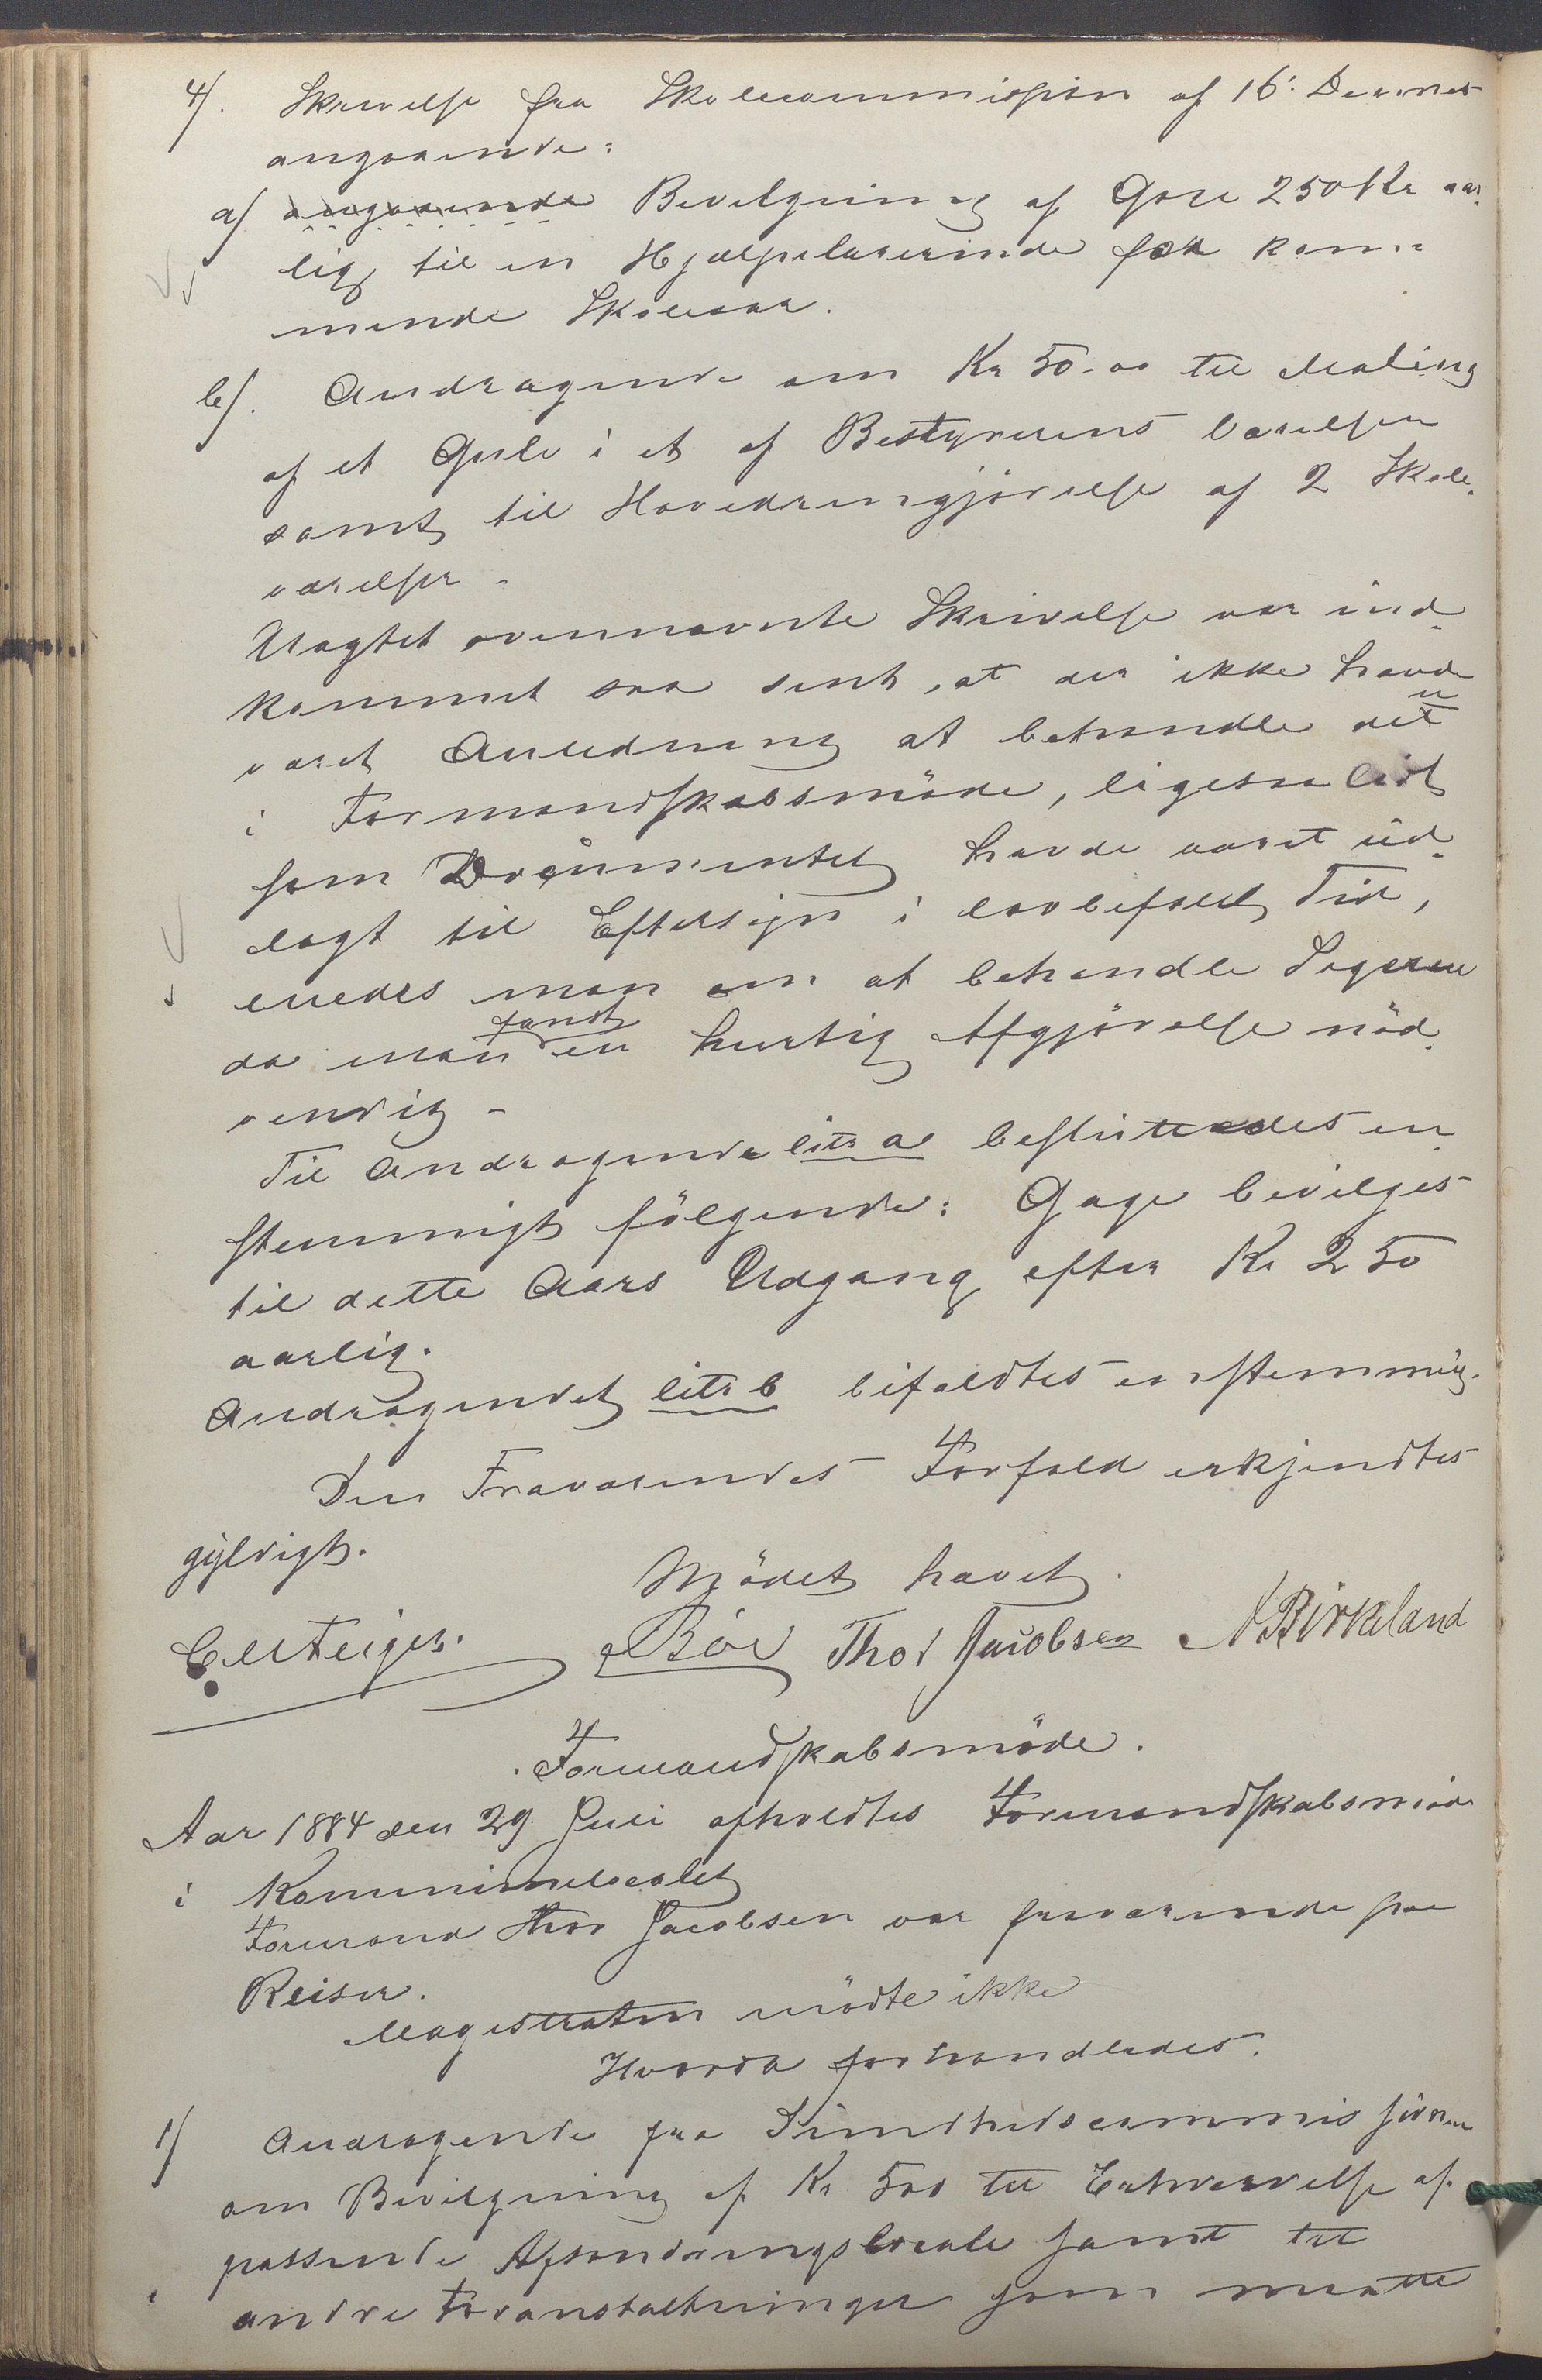 4/. Skrivelse fra Skolecommission af 16: Dennes
angaaende:
a/ angaaende Bevilgning af Gage 250 Kr aar-
lig til en Hjælpelærerinde for kom-
mende Skoleaar.
b/. Andragende om Kr 50.00 til Maling
af et Gulv i et af Bestyrerens Værelser
samt til Hovedrengjörelse af 2 Skole-
værelser.
Uagtet ovennævnte Skrivelse var ind-
kommet saa sent, at der ikke havde
været Anledning at behandle den
i Formandskabsmöde, ligesaalidt
som Documentet havde været ud-
lagt til Eftersyn i lovbefalet Tid,
enedes man om at behandle Sagerne
da man fandt en hurtig Afgjörelse nöd-
vendig -
Til Andragende litr a besluttedes en
stemmigt fölgende: Gage bevilges
til dette Aars Udgang efter Kr 250
aarlig.
Andragendet litr b bifaldtes enstemmig.
Den Fraværendes Forfald erkjendtes
gyldigt.
Mödet hævet.
Thor Jacobsen N Birkeland
Formandskabsmöde.
Aar 1884 den 29 Juli afholdtes Formandskabsmöde
i Kommunelocalet
Formand Thor Jacobsen var fraværende paa
Reiser.
Magistraten mödte ikke
Hvorda forhandledes.
1/ Andragende fra Sundhedscommissionen
om Bevilgning af Kr 500 til Erhvervelse af
passende Afsondringslocale samt til
andre Foranstaltninger som maatte